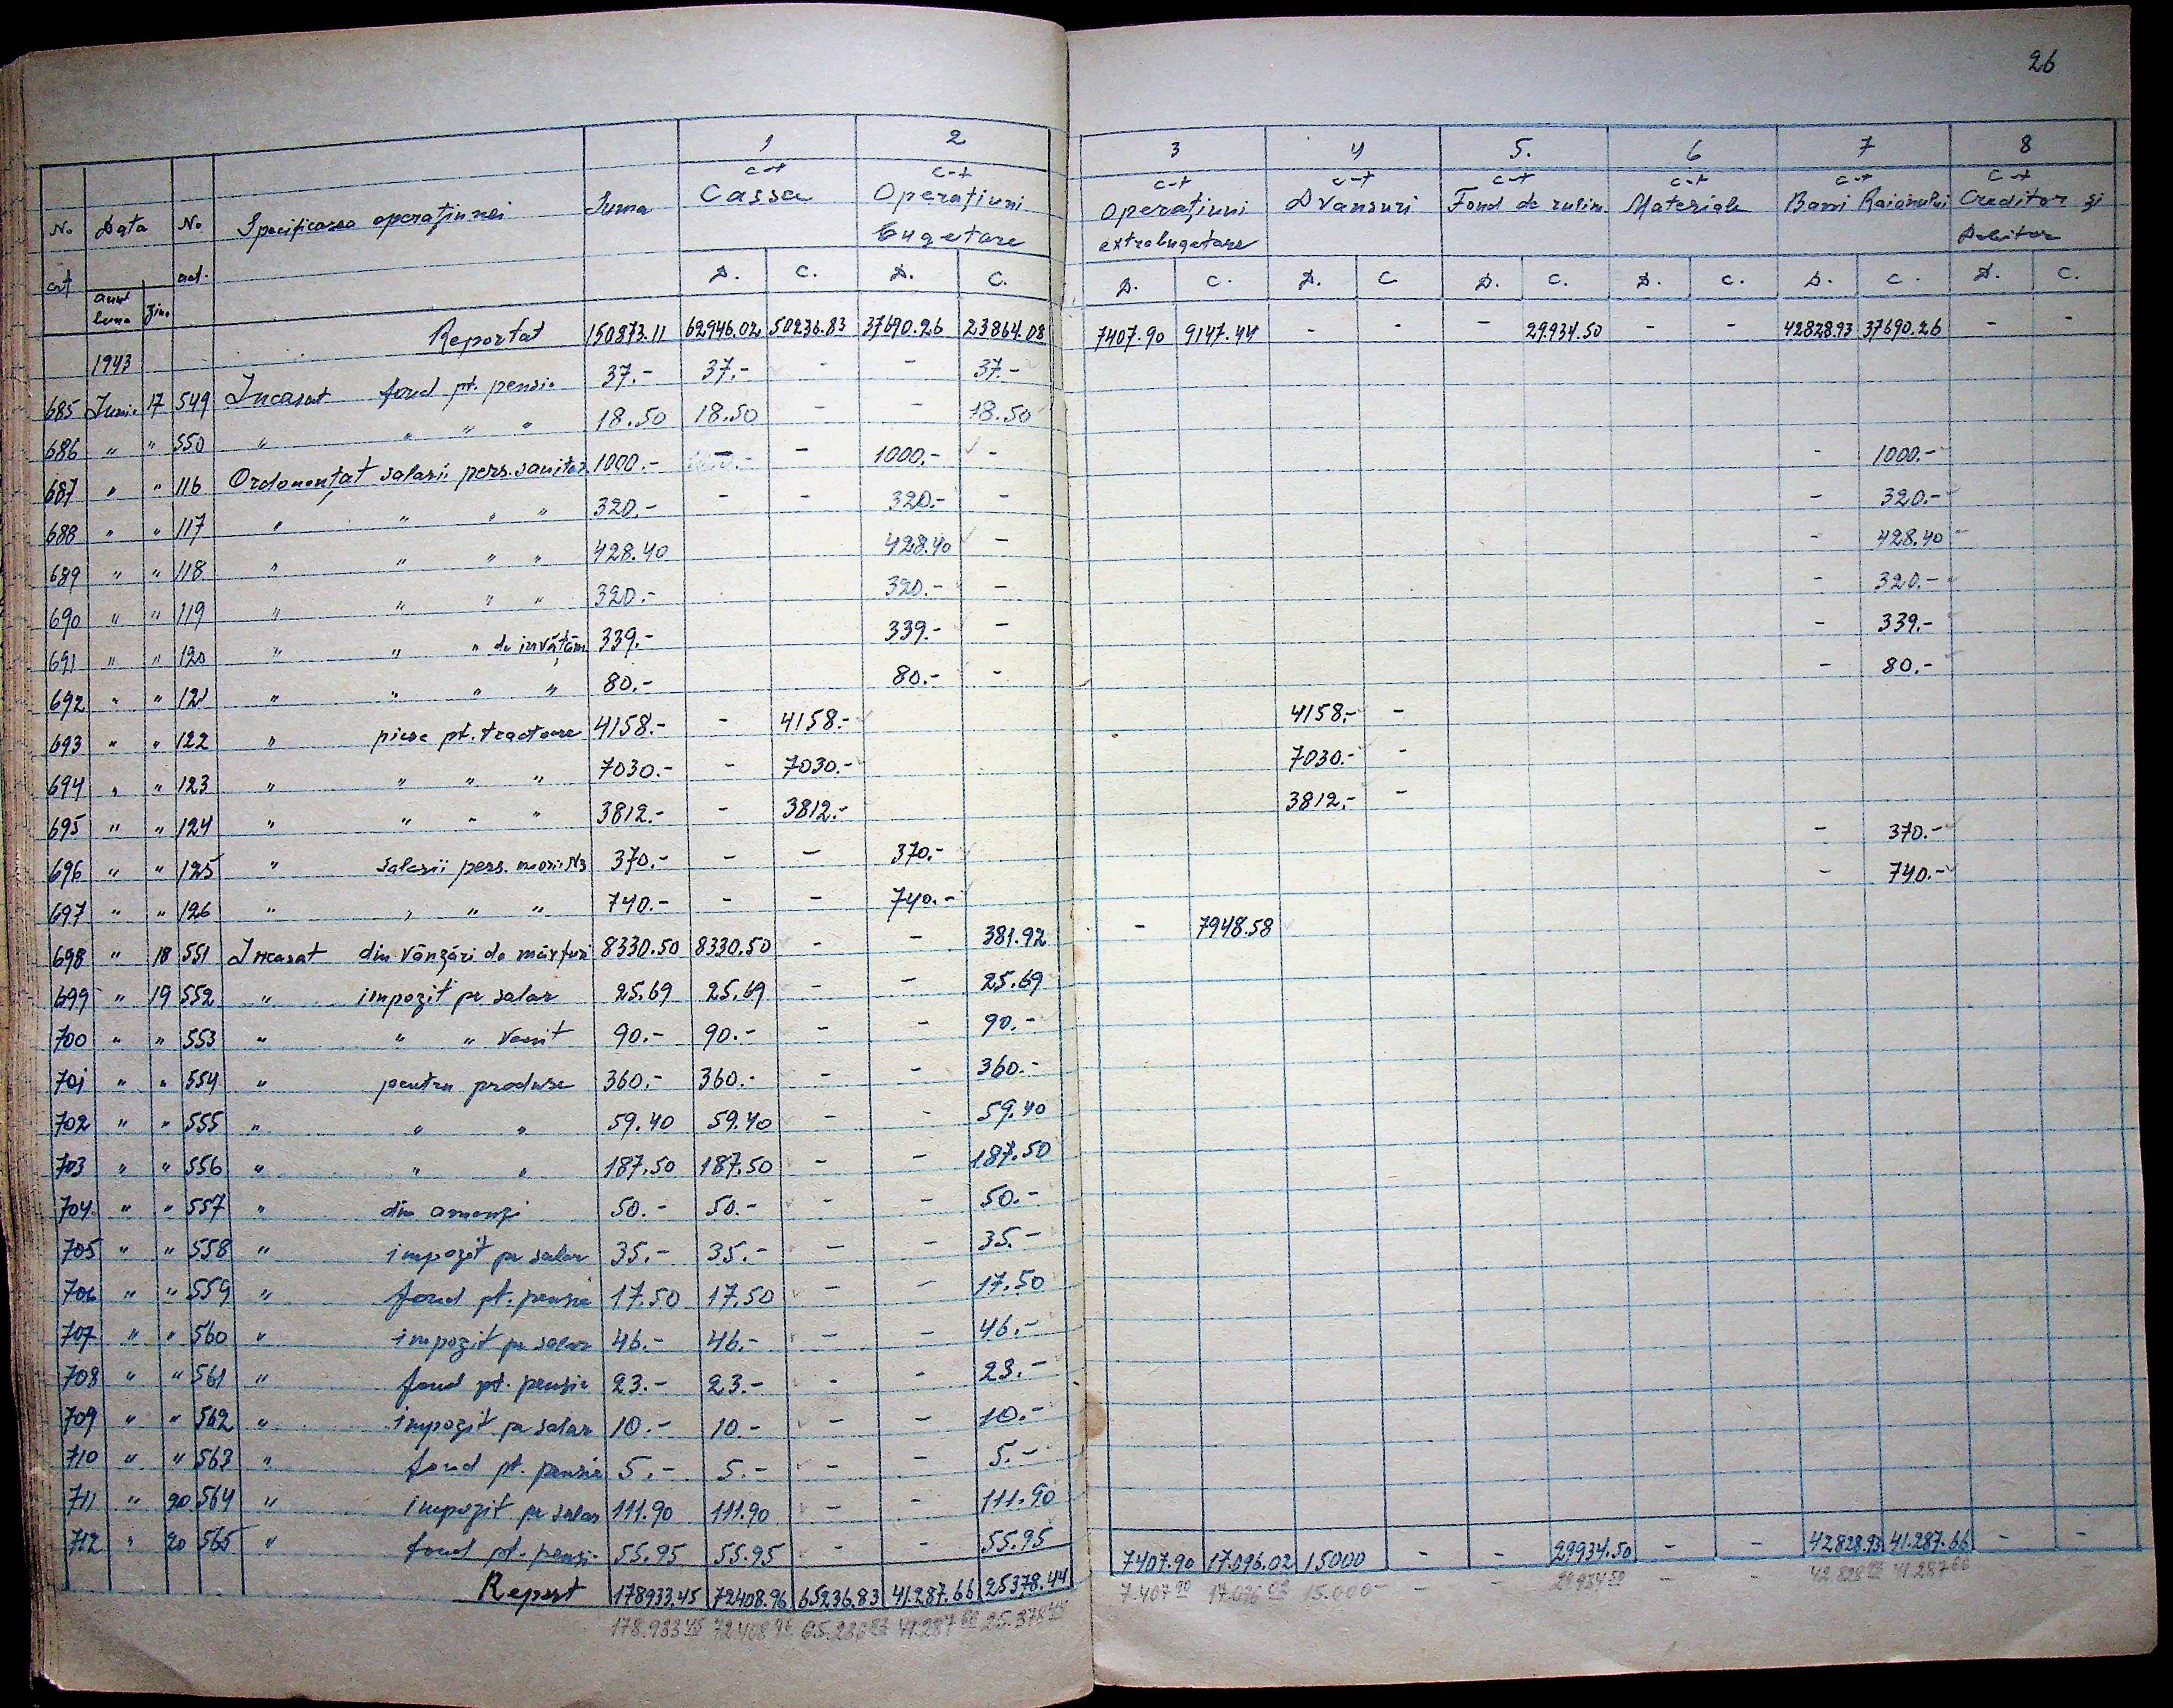 26
1 2 3 4 5. 6 7 8
No. crt Data anul luna ziua No. act. Specificarea operațiunei Suma c-t Cassa c-t Operațiuni bugetare c-t Operațiuni extrabugetare c-t Avansuri c-t Fond de rulm. c-t Materiale c-t Banii Raionului c-t Creditor și Debitor
D. C. D. C. D. C. D. C D. C. D. C. D. C. D. C.
Reportat 150873.11 62946.02 50236.83 37690.26 23864.08 7407.90 9147.44 - - - 29934.50 - - 42828.93 37690.26 - -
1943
685 Iunie 17 549 Incasat fond pt. pensie 37.- 37.- - - 37.-
686 " " 550 " " " " 18.50 18.50 - - 18.50
687 " " 116 Ordonanțat salarii pers. sanitar 1000.- - - 1000.- - - 1000.-
688 " " 117 " " " " 320.- - - 320.- - - 320.-
689 " " 118 " " " " 428.40 428.40 - - 428.40
690 " " 119 " " " " 320.- 320.- - - 320.-
691 " " 120 " " " de invățăm 339.- 339.- - - 339.-
692 " " 121 " " " " 80.- 80.- - - 80.-
693 " " 122 " piese pt. tractoare 4158.- - 4158.- 4158.- -
694 " " 123 " " " " 7030.- - 7030.- 7030.- -
695 " " 124 " " " " 3812.- - 3812.- 3812.- -
696 " " 125 " Salarii pers. morii N3 370.- - - 370.- - 370.-
697 " " 126 " " " " 740.- - - 740.- - 740.-
698 " 18 551 Incasat din vânzări de mărfuri 8330.50 8330.50 - - 381.92 - 7948.58
699 " 19 552 " impozit pe salar 25.69 25.69 - - 25.69
700 " " 553 " " " venit 90.- 90.- - - 90.-
701 " " 554 " pentru produse 360.- 360.- - - 360.-
702 " " 555 " " " 59.40 59.40 - - 59.40
703 " " 556 " " " 187.50 187.50 - - 187.50
704. " " 557 " din amenzi 50.- 50.- - - 50.-
705 " " 558 " impozit pe salar 35.- 35.- - - 35.-
706 " " 559 " fond pt. pensie 17.50 17.50 - - 17.50
707 " " 560 " impozit pe salar 46.- 46.- - - 46.-
708 " " 561 " fond pt. pensie 23.- 23.- - - 23.-
709 " " 562 " impozit pe salar 10.- 10.- - - 10.-
710 " " 563 " fond pt. pensie 5.- 5.- - - 5.-
711 " 20 564 " impozit pe salar 111.90 111.90 - - 111.90
712 " 20 565 " fond pt. pensie 55.95 55.95 - - 55.95
Report 178933.45 72408.96 65236.83 41.287.66 25378.44 7407.90 17.096.02 15000 - - 29934.50 - - 42828.93 41.287.66 - -
178.933 45 72.408 96 65.236 83 41.287 66 25.378 44 7.407 90 17.096 02 15.000 - - - 29934 50 - - 42 828 93 41.287 66